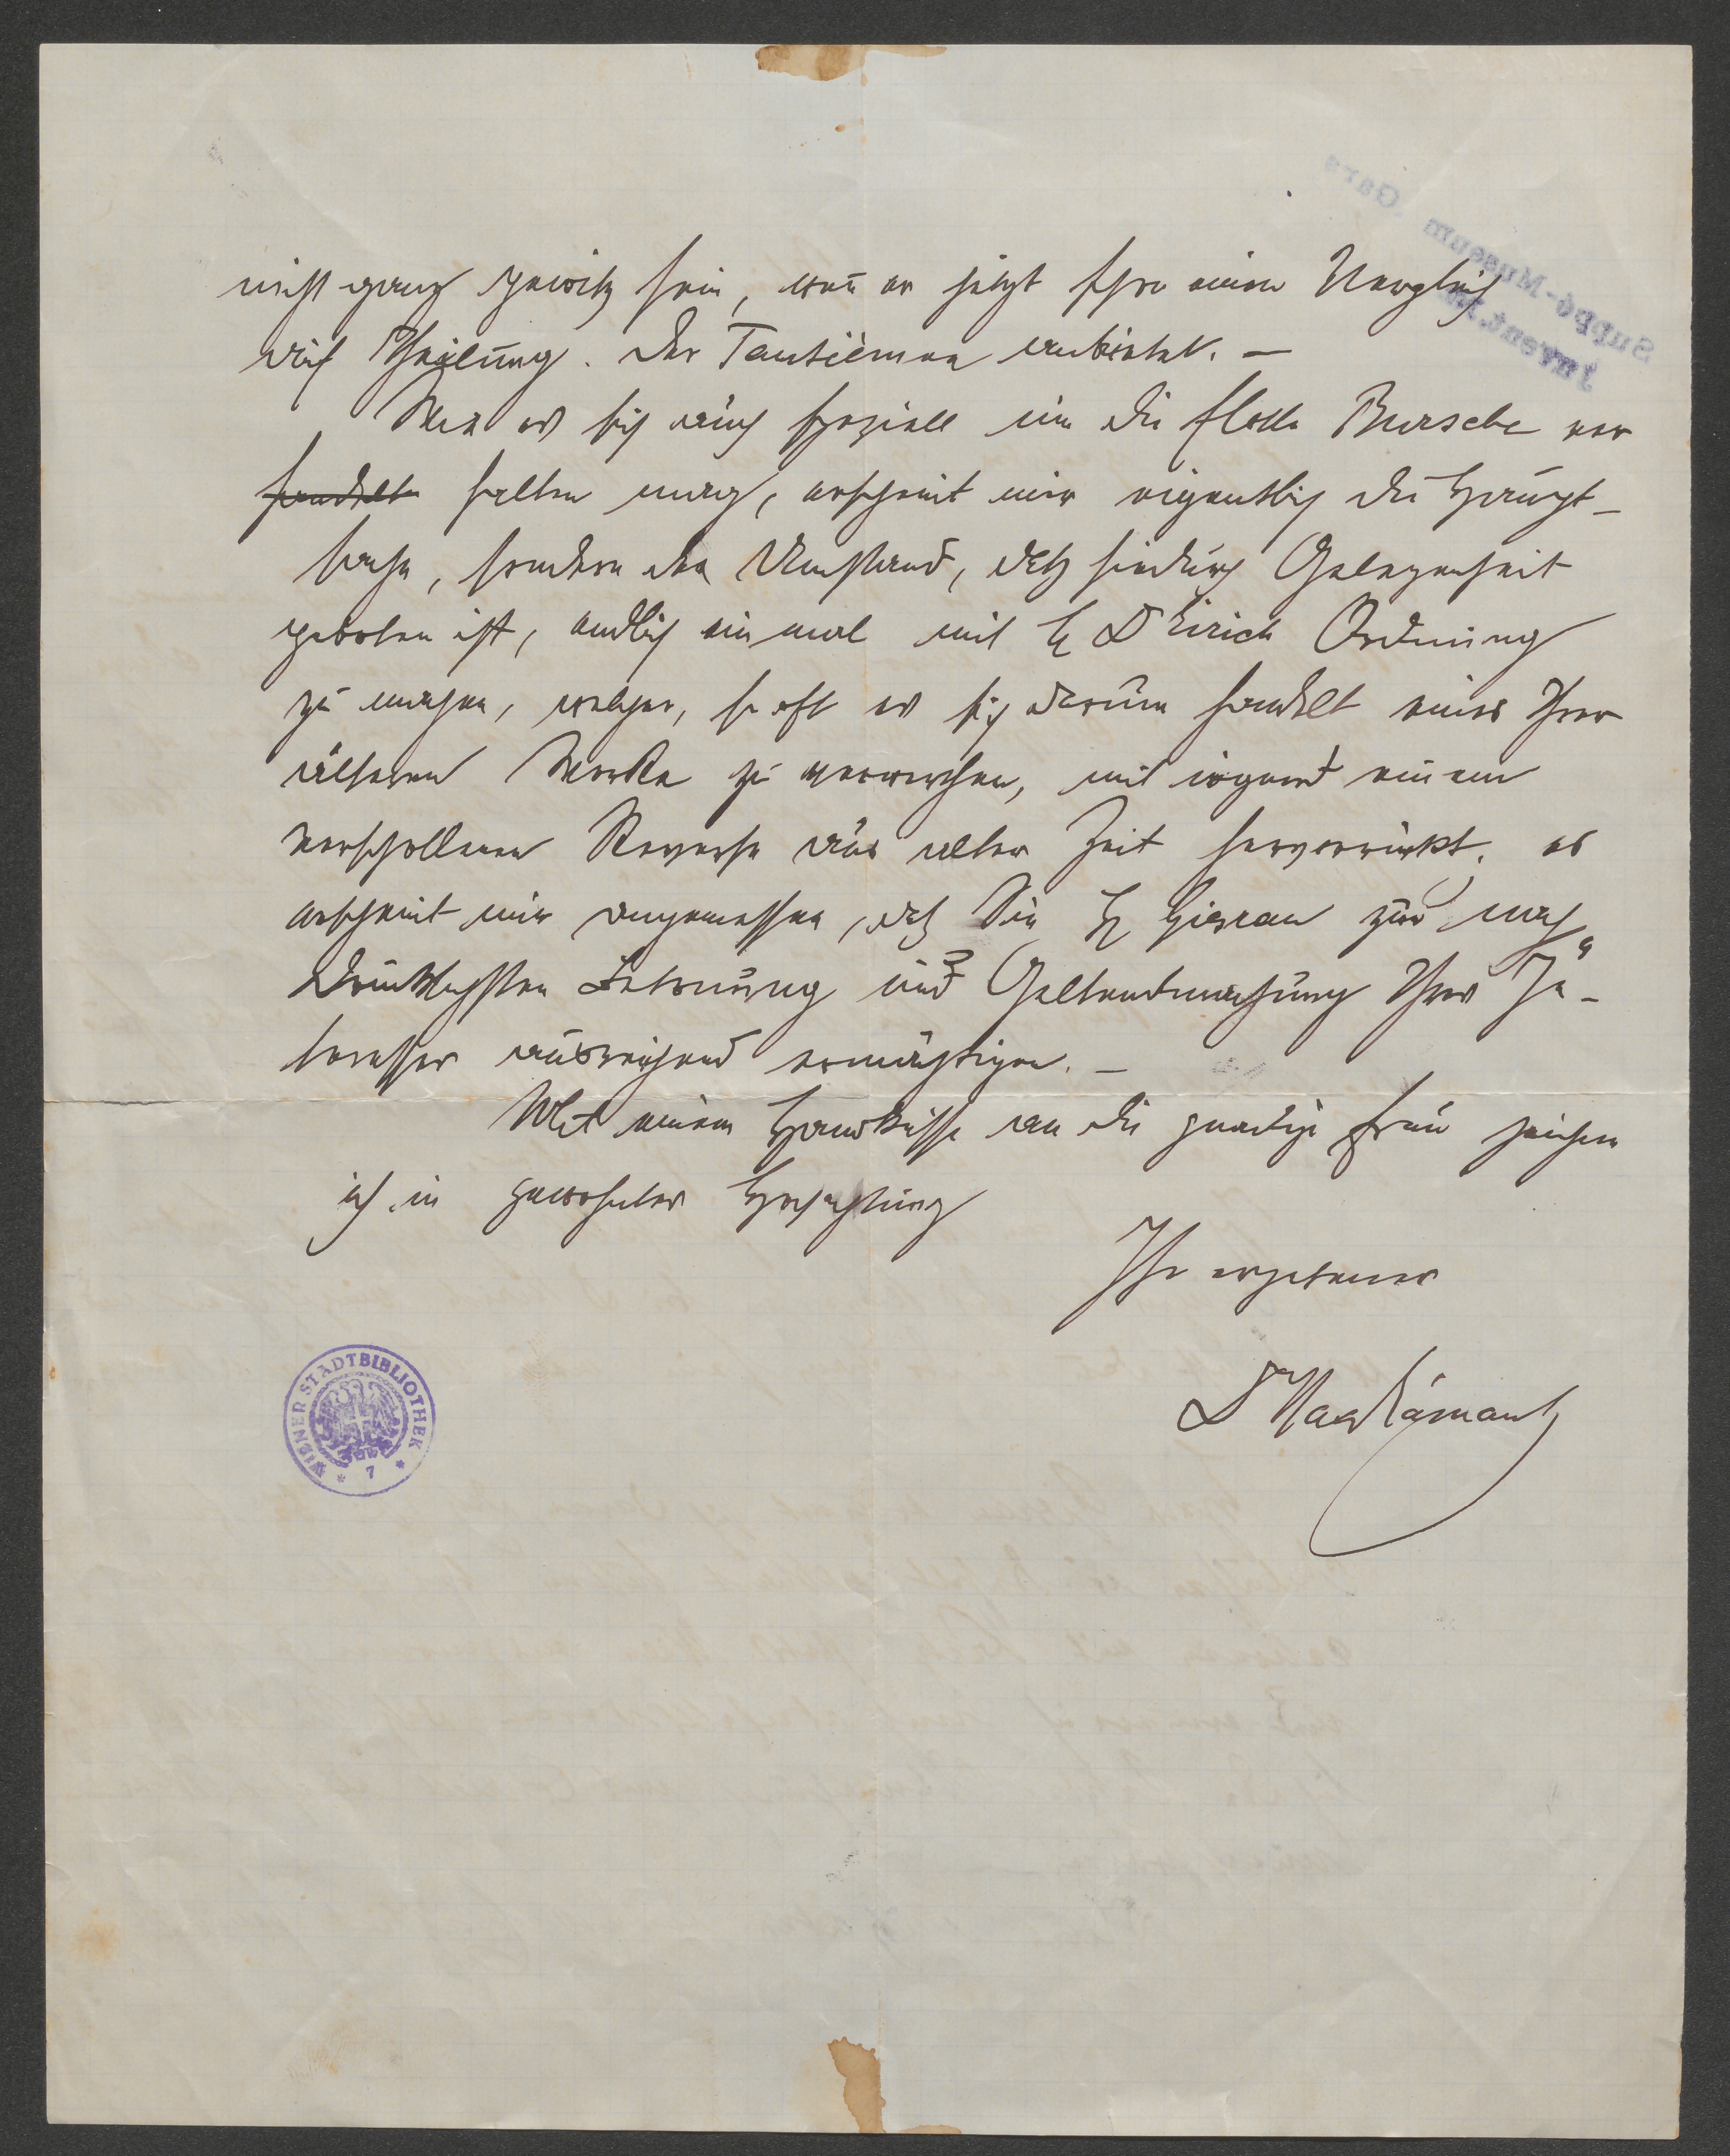 nicht ganz gewiß sein, weñ er jetzt schon einen Vergleich
auf Theilung. der Tantièmen anbietet. —
Wen es sich auch speziell um die flotte Bursche ver
handelt halten mag, erscheint mir eigentlich die Haupt-
sache, sondern der Umstand, daß hiedurch Gelegenheit
geboten ist, endlich einmal mit H Dr Eirich Ordnung
zu machen, welcher, so oft es sich darum handelt eines Ihrer
älteren Werke zu verwerthen, mit irgend einem
verschollenen Reverse aus alter Zeit hervorrückt. es
erscheint mir angemessen, daß Sie H Gierau zur nach
drücklichsten Betreuung und Geltendmachung Ihrer In-
teressen ausreichend ermächtigen. —
Mit einem Handkusse an die gnädige Frau zeichne
ich in gewohnter Hochachtung
Ihr ergebener
Dr
Suppé-Museum Gars
Invent.Nr.
WIENER STADTBIBLIOTHEK
* 7 *